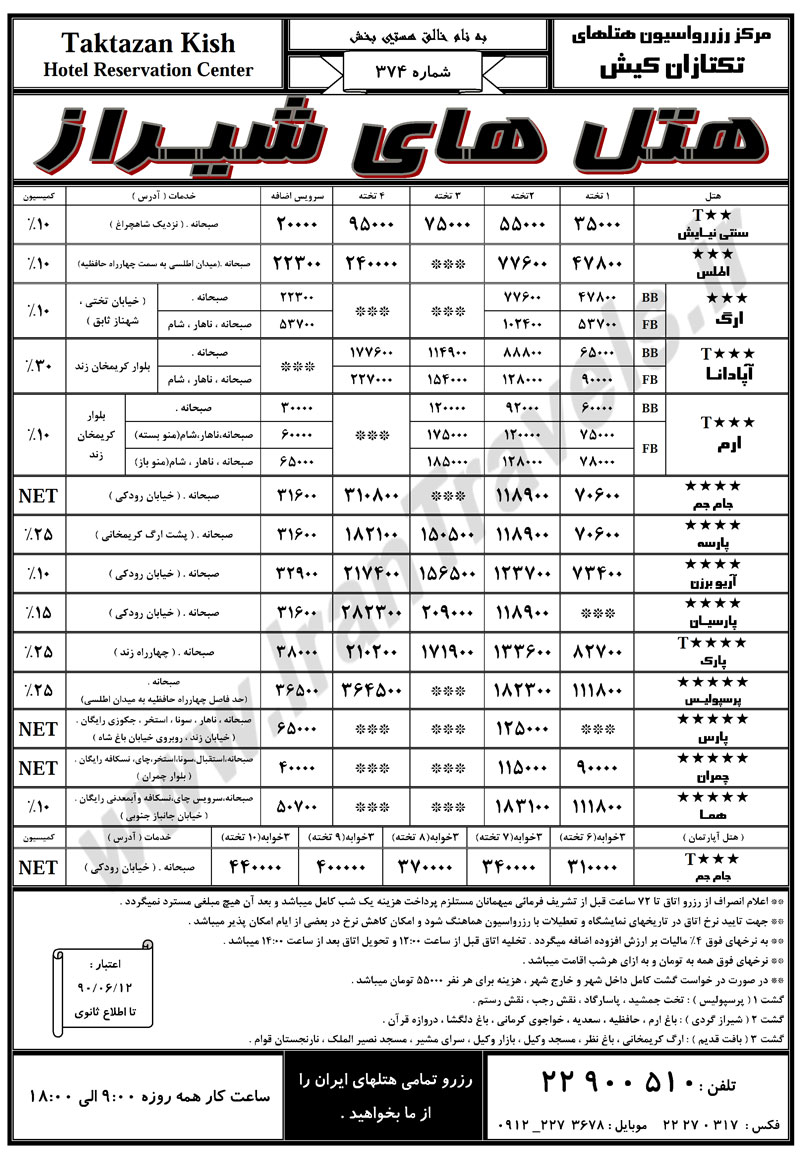 مرکز رزرواسیون هتلهای
تکتازان کیش
به نام خالق هستی بخش
شماره ۳۷۴
Taktazan Kish
Hotel Reservation Center
هتل های شیراز
هتل ۱ تخته ۲تخته ۳ تخته ۴ تخته سرویس اضافه خدمات ( آدرس ) کمیسیون
T★★ سنتی نیایش ۳۵۰۰۰ ۵۵۰۰۰ ۷۵۰۰۰ ۹۵۰۰۰ ۲۰۰۰۰ صبحانه . ( نزدیک شاهچراغ ) ٪۱۰
★★★ اطلس ۴۷۸۰۰ ۷۷۶۰۰ *** ۲۴۰۰۰۰ ۲۲۳۰۰ صبحانه .(میدان اطلسی به سمت چهارراه حافظیه) ٪۱۰
★★★ ارگ BB ۴۷۸۰۰ ۷۷۶۰۰ *** *** ۲۲۳۰۰ صبحانه . ( خیابان تختی ، شهناز ثابق ) ٪۱۰
FB ۵۳۷۰۰ ۱۰۲۴۰۰ ۵۳۷۰۰ صبحانه ، ناهار ، شام
T★★★ آپادانا BB ۶۵۰۰۰ ۸۸۸۰۰ ۱۱۴۹۰۰ ۱۷۷۶۰۰ *** صبحانه . بلوار کریمخان زند ٪۳۰
FB ۹۰۰۰۰ ۱۲۸۰۰۰ ۱۵۴۰۰۰ ۲۲۷۰۰۰ صبحانه ، ناهار ، شام
T★★★ ارم BB ۶۰۰۰۰ ۹۲۰۰۰ ۱۲۰۰۰۰ *** ۳۰۰۰۰ صبحانه . بلوار کریمخان زند ٪۱۰
FB ۷۵۰۰۰ ۱۲۰۰۰۰ ۱۷۵۰۰۰ ۶۰۰۰۰ صبحانه،ناهار،شام(منو بسته)
۷۸۰۰۰ ۱۲۸۰۰۰ ۱۸۵۰۰۰ ۶۵۰۰۰ صبحانه ، ناهار ، شام(منو باز)
★★★★ جام جم ۷۰۶۰۰ ۱۱۸۹۰۰ *** ۳۱۰۸۰۰ ۳۱۶۰۰ صبحانه . ( خیابان رودکی ) NET
★★★★ پارسه ۷۰۶۰۰ ۱۱۸۹۰۰ ۱۵۰۵۰۰ ۱۸۲۱۰۰ ۳۱۶۰۰ صبحانه . ( پشت ارگ کریمخانی ) ٪۲۵
★★★★ آریو برزن ۷۳۴۰۰ ۱۲۳۷۰۰ ۱۵۶۵۰۰ ۲۱۷۴۰۰ ۳۲۹۰۰ صبحانه . ( خیابان رودکی ) ٪۱۰
★★★★ پارسیان *** ۱۱۸۹۰۰ ۲۰۹۰۰۰ ۲۸۲۳۰۰ ۳۱۶۰۰ صبحانه . ( خیابان رودکی ) ٪۱۵
T★★★★ پارک ۸۲۷۰۰ ۱۳۳۶۰۰ ۱۷۱۹۰۰ ۲۱۰۲۰۰ ۳۸۰۰۰ صبحانه . ( چهارراه زند ) ٪۲۵
★★★★★ پرسپولیس ۱۱۱۸۰۰ ۱۸۲۳۰۰ *** ۳۶۴۵۰۰ ۳۶۵۰۰ صبحانه . (حد فاصل چهارراه حافظیه به میدان اطلسی) ٪۲۵
★★★★★ پارس *** ۱۲۵۰۰۰ *** *** ۶۵۰۰۰ صبحانه ، ناهار ، سونا ، استخر ، جکوزی رایگان . ( خیابان زند ، روبروی خیابان باغ شاه ) NET
★★★★★ چمران ۹۰۰۰۰ ۱۱۵۰۰۰ *** *** ۴۰۰۰۰ صبحانه،استقبال،سونا،استخر،چای، نسکافه رایگان . ( بلوار چمران ) NET
★★★★★ هما ۱۱۱۸۰۰ ۱۸۳۱۰۰ *** *** ۵۰۷۰۰ صبحانه،سرویس چای،نسکافه وآبمعدنی رایگان . ( خیابان جانباز جنوبی ) ٪۱۰
( هتل آپارتمان ) ۳خوابه(۶ تخته) ۳خوابه(۷ تخته) ۳خوابه(۸ تخته) ۳خوابه(۹ تخته) ۳خوابه(۱۰ تخته) خدمات ( آدرس ) کمیسیون
T★★★ جام جم ۳۱۰۰۰۰ ۳۴۰۰۰۰ ۳۷۰۰۰۰ ۴۰۰۰۰۰ ۴۴۰۰۰۰ صبحانه . ( خیابان رودکی ) NET
** اعلام انصراف از رزرو اتاق تا ۷۲ ساعت قبل از تشریف فرمائی میهمانان مستلزم پرداخت هزینه یک شب کامل میباشد و بعد آن هیچ مبلغی مسترد نمیگردد .
** جهت تایید نرخ اتاق در تاریخهای نمایشگاه و تعطیلات با رزرواسیون هماهنگ شود و امکان کاهش نرخ در بعضی از ایام امکان پذیر میباشد .
** به نرخهای فوق ۴٪ مالیات بر ارزش افزوده اضافه میگردد . تخلیه اتاق قبل از ساعت ۱۲:۰۰ و تحویل اتاق بعد از ساعت ۱۴:۰۰ میباشد .
** نرخهای فوق همه به تومان و به ازای هرشب اقامت میباشد .
** در صورت در خواست گشت کامل داخل شهر و خارج شهر ، هزینه برای هر نفر ۵۵۰۰۰ تومان میباشد .
گشت ۱ ( پرسپولیس ) : تخت جمشید ، پاسارگاد ، نقش رجب ، نقش رستم .
گشت ۲ ( شیراز گردی ) : باغ ارم ، حافظیه ، سعدیه ، خواجوی کرمانی ، باغ دلگشا ، دروازه قرآن .
گشت ۳ ( بافت قدیم ) : ارگ کریمخانی ، باغ نظر ، مسجد وکیل ، بازار وکیل ، سرای مشیر ، مسجد نصیر الملک ، نارنجستان قوام .
اعتبار :
۹۰/۰۶/۱۲
تا اطلاع ثانوی
تلفن : ۲۲ ۹۰۰ ۵۱۰
فکس : ۲۲ ۲۷ ۰ ۳۱۷ موبایل : ۰۹۱۲_ ۲۲۷ ۳۶۷۸
رزرو تمامی هتلهای ایران را
از ما بخواهید .
ساعت کار همه روزه ۹:۰۰ الی ۱۸:۰۰
www.IranTravels.ir